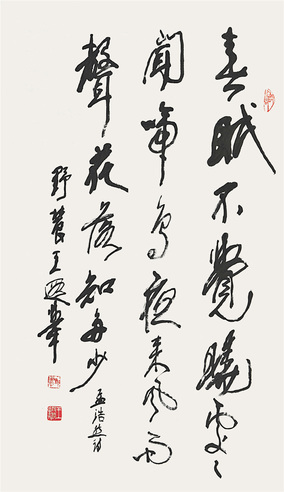 春眠不覺曉處々
聞啼鳥夜来風雨
聲花落知多少
孟浩然詩
野農王遐舉